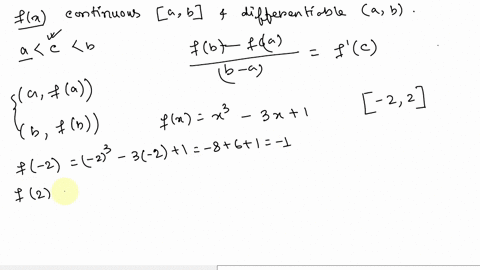 f(x) continuous [a, b] & differentiable (a, b).
a < c < b
f(b) - f(a) / (b-a) = f'(c)
(a, f(a))
(b, f(b))
f(x) = x³ - 3x + 1 [-2, 2]
f(-2) = (-2)³ - 3(-2) + 1 = -8 + 6 + 1 = -1
f(2)